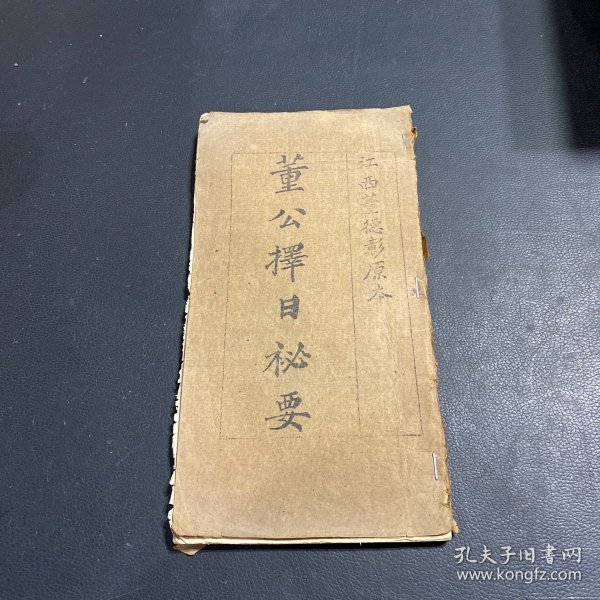 江西董德彰原本
董公擇日祕要
孔夫子旧書网
www.kongfz.com